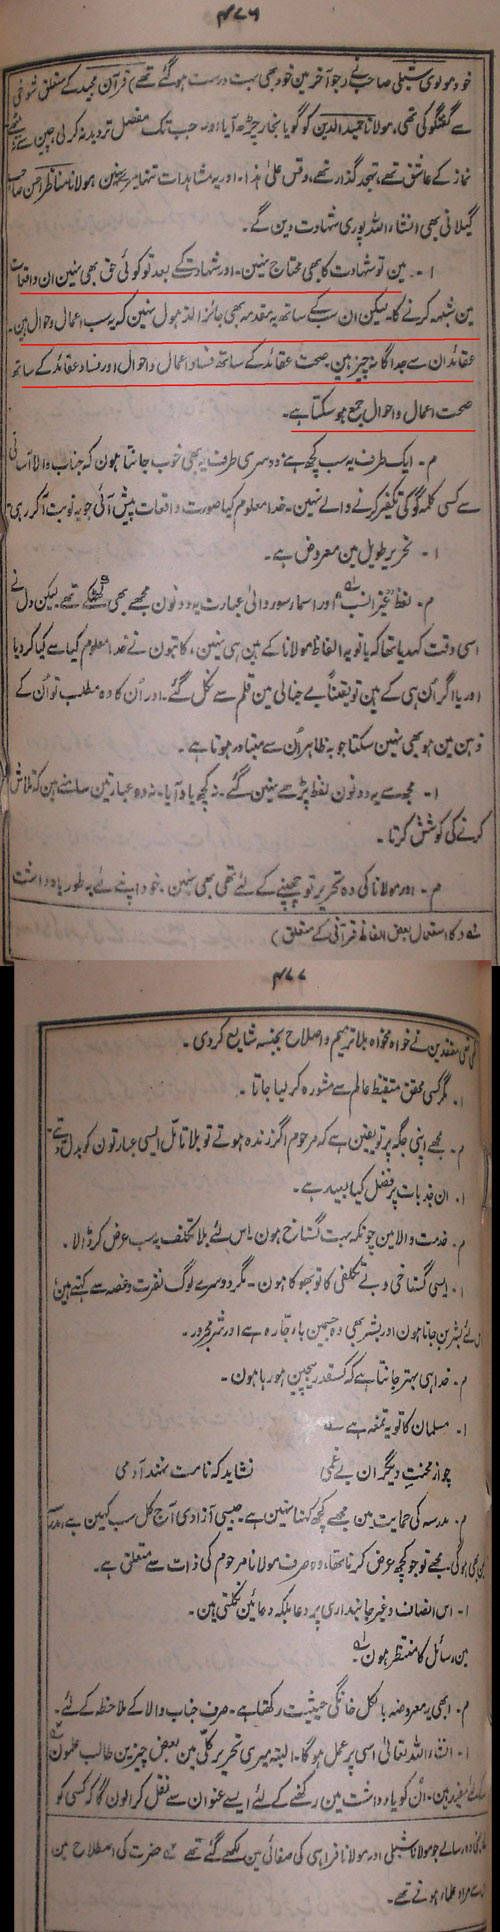 ۴۷۶
خود مولوی شبلی صاحب نے (جو آخر میں خود بھی بہت درست ہو گئے تھے) قرآن مجید کے متعلق شوخی
سے گفتگو کی تھی، مولانا حمید الدین کو گویا بخار چڑھ آیا اور جب تک مفصل تردید نہ کر لی، چین سے نہ
نماز کے عاشق تھے، تہجد گذار تھے، وقس علیٰ ہذا۔ اور یہ مشاہدات تنہا میرے نہیں مولانا مناظر احسن صاحب
گیلانی بھی انشاء اللہ پوری شہادت دیں گے۔
ا۔ میں تو شہادت کا بھی محتاج نہیں۔ اور شہادت کے بعد تو کوئی حق بھی نہیں ان واقعات
میں شبہ کرنے کا۔ لیکن ان سب کے ساتھ یہ مقدمہ بھی جائز الذہول نہیں کہ یہ سب اعمال و احوال ہیں۔
عقائد ان سے جداگانہ چیز ہیں۔ صحت عقائد کے ساتھ فساد اعمال و احوال اور فساد عقائد کے ساتھ
صحت اعمال و احوال جمع ہو سکتا ہے۔
م۔ ایک طرف یہ سب کچھ ہے، دوسری طرف یہ بھی خوب جانتا ہوں کہ جناب والا آسانی
سے کسی کلمہ گو کی تکفیر کرنے والے نہیں۔ خدا معلوم کیا صورت واقعات پیش آئی جو یہ نوبت آ کر رہی
ا۔ تحریر طویل میں معروض ہے۔
م۔ لفظ "غیر انسب" اور اسمار سور والی عبارت یہ دونوں مجھے بھی کھٹکے تھے لیکن دل نے
اسی وقت کہدیا تھا کہ یا تو یہ الفاظ مولانا کے ہیں ہی نہیں، کاتبوں نے خدا معلوم کیا سے کیا کر دیا
اور یا اگر ان ہی کے ہیں تو یقیناً بے خیالی میں قلم سے نکل گئے۔ اور ان کا وہ مطلب تو ان کے
ذہن میں ہو بھی نہیں سکتا جو بہ ظاہر ان سے متبادر ہوتا ہے۔
ا۔ مجھ سے یہ دونوں لفظ پڑھے نہیں گئے۔ نہ کچھ یاد آیا۔ نہ وہ عبارتیں سامنے ہیں کہ تلاش
کرنے کی کوشش کرتا۔
م۔ اور مولانا کی وہ تحریر تو چھپنے کے لئے تھی بھی نہیں۔ خود اپنے لئے بہ طور یاد داشت
(کا استعمال بعض الفاظ قرآنی کے متعلق)
۴۷۷
تھی معتقدین نے خواہ مخواہ بلا ترمیم و اصلاح بجنسہ شایع کر دی۔
ا۔ مگر کسی محقق متیقظ عالم سے مشورہ کر لیا جاتا۔
م۔ مجھے اپنی جگہ پر تو یقین ہے کہ مرحوم اگر زندہ ہوتے تو بلا تامل ایسی عبارتوں کو بدل دیتے
ا۔ ان جذبات پر فضل کیا بعید ہے۔
م۔ خدمت والا میں چونکہ بہت گستاخ ہوں۔ اس لئے بلا تکلف یہ سب عرض کر ڈالا۔
ا۔ ایسی گستاخی و بے تکلفی کا تو بھوکا ہوں۔ مگر دوسرے لوگ نفرت و غصہ سے کہتے ہیں
لئے بشر بن جاتا ہوں اور بشر بھی وہ جس میں باء جارہ ہے اور شر مجرور۔
م۔ خدا ہی بہتر جانتا ہے کہ کسقدر بیچین ہو رہا ہوں۔
ا۔ مسلمان کا تو یہ تمغہ ہے
چو از محنت دیگران بے غمی نشاید کہ نامت نہند آدمی
م۔ مدرسہ کی حمایت میں مجھے کچھ کہنا نہیں ہے۔ جیسی آزادی آج کل سب کہیں ہے، مدرسہ
میں بھی ہو گی۔ مجھے تو جو کچھ عرض کرنا تھا، وہ صرف مولانا مرحوم کی ذات سے متعلق ہے۔
ا۔ اس انصاف و غیر جانبداری پر دعا بلکہ دعائیں نکلتی ہیں۔
میں رسائل کا منتظر ہوں۔
م۔ ابھی یہ معروضہ بالکل خانگی حیثیت رکھتا ہے۔ صرف جناب والا کے ملاحظہ کے لئے۔
ا۔ انشاء اللہ تعالیٰ اسی پر عمل ہو گا۔ البتہ میری تحریر کلی میں بعض چیزیں طالب علموں
کے لئے مفید ہیں۔ ان کو یاد داشت میں رکھنے کے لئے ایسے عنوان سے نقل کرا لوں گا کہ کسی کو
وہ رسالے جو مولانا شبلی اور مولانا فراہی کی صفائی میں لکھے گئے تھے حضرت کی اصطلاح میں
مراد علماء ہوتے تھے۔